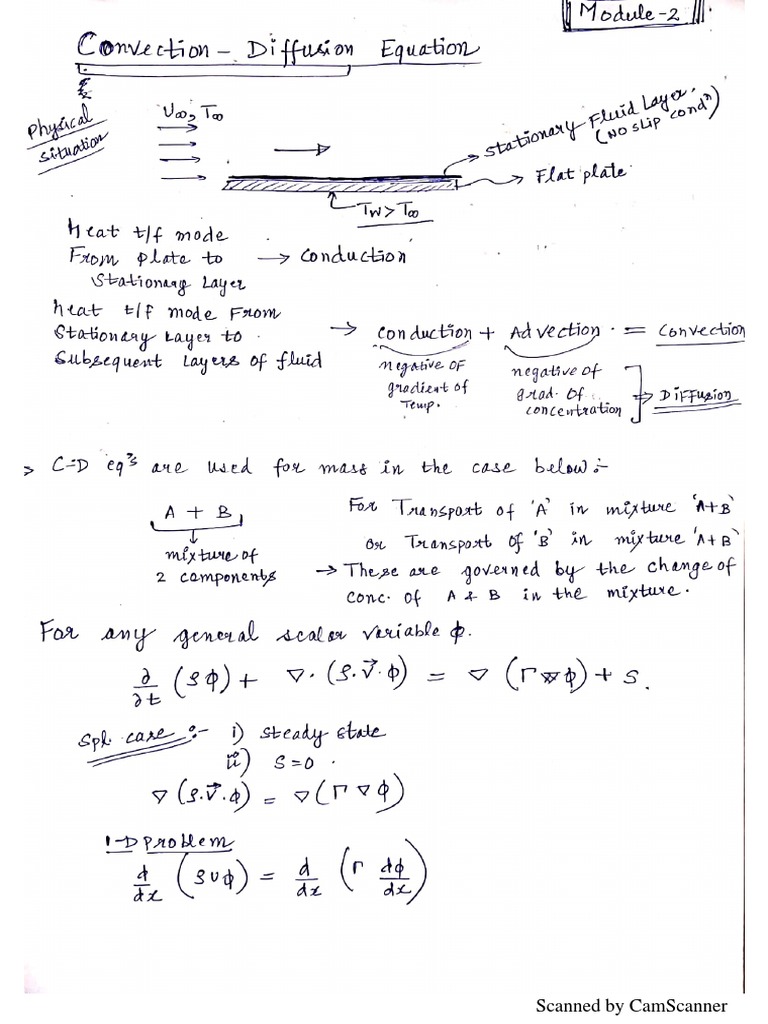 Module-2
Convection - Diffusion Equation
Physical
situation
U∞, T∞
Stationary Fluid Layer.
(No slip condⁿ)
Flat plate.
Tw > T∞
Heat t/f mode
From plate to → conduction
Stationary Layer
heat t/f mode From
Stationary Layer to → conduction + Advection = Convection
Subsequent Layers of fluid
negative of
gradient of
Temp.
negative of
grad. of
concentration
→ Diffusion
> C-D eqⁿs are used for mass in the case below:-
A + B
mixture of
2 components
For Transport of 'A' in mixture 'A+B'
or Transport of 'B' in mixture 'A+B'
→ These are governed by the change of
conc. of A & B in the mixture.
For any general scalar variable ϕ.
∂/∂t (ρϕ) + ∇. (ρ.V⃗.ϕ) = ∇ (Γ∇ϕ) + S.
Spl. case :- i) steady state
ii) S=0.
∇ (ρ.V⃗.ϕ) = ∇(Γ∇ϕ)
1-D problem
d/dx (ρυϕ) = d/dx (Γ dϕ/dx)
Scanned by CamScanner